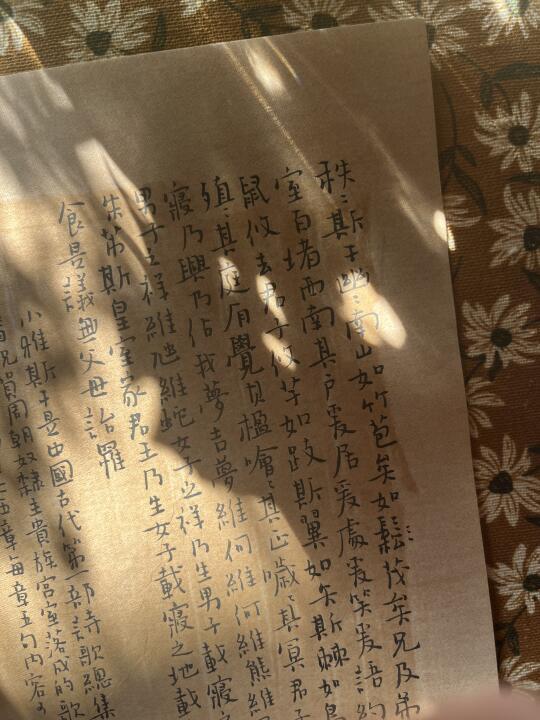 秩〻斯干幽〻南山如竹苞矣如鬆茂矣兄及弟
室百堵西南其戶爰居爰處爰笑爰語約
鼠攸去君子攸芋如跂斯翼如矢斯棘如鳥
殖〻其庭有覺其楹噲〻其正噦〻其冥君子
寢乃興乃佔我夢吉夢維何維熊維
男子之祥維虺維蛇女子之祥乃生男子載寢
朱芾斯皇室家君王乃生女子載寢之地載
食是議無父母詒罹
小雅斯干是中國古代第一部詩歌總集
周朝奴隸主貴族宮室落成的歌
章每章五句內容